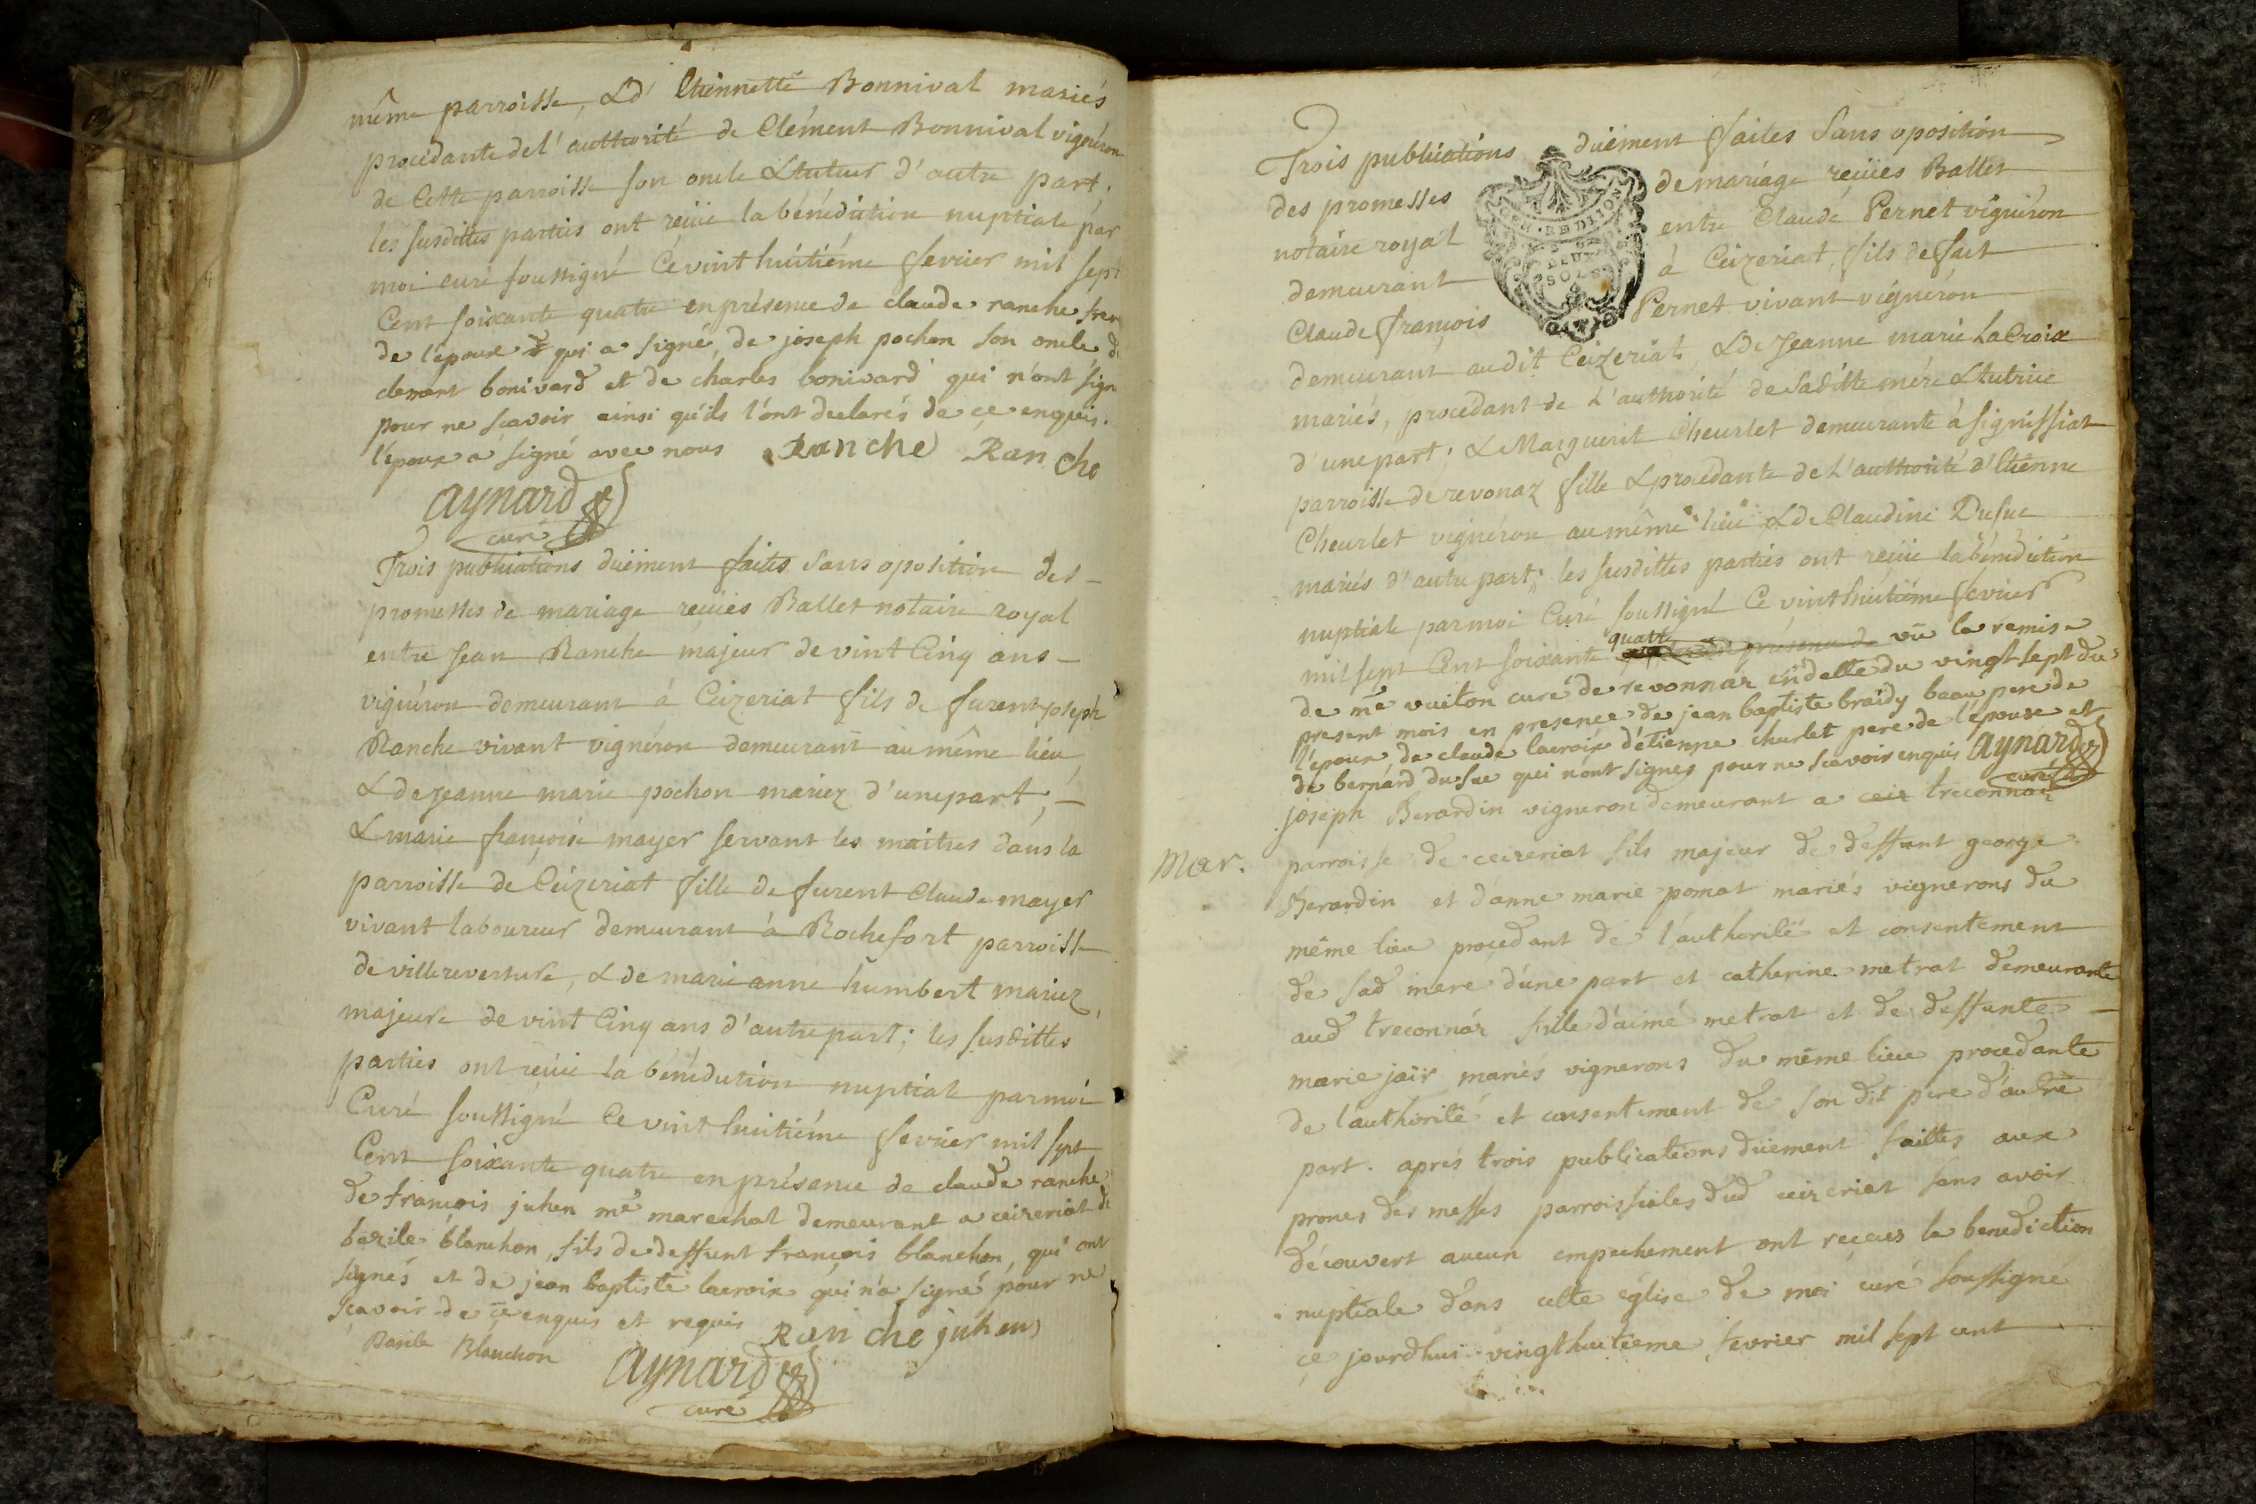 même parroisse, & d'Etiennette Bonnival mariés
procédante de l'authorité de Clément Bonnival vignéron
de Cette parroisse son oncle & tuteur d'autre part.
les susdittes parties ont reüe la bénédiction nuptiale par
moi curé soussigné Ce vint huitiéme fevrier mil sept
Cent soixante quatre en présence de claude ranche frere
de l'epoux qui a signé, de joseph pochon son oncle de
clement bonivard et de charles bonivard qui n'ont signé
pour ne scavoir ainsi qu'ils l'ont declarés de çe enquis.
l'époux a signé avec nous Ranche Ranche
aynard
curé
Trois publications düement faites sans oposition des
promesses de mariage reçües Ballet notaire royal
entre Jean Ranche majeur de vint Cinq ans
vignéron demeurant à Ceizeriat fils de furent joseph
Ranche vivant vignéron demeurant au même lieu
& de Jeanne marie pochon mariez d'une part;
& marie françoise mayer servant les maitres dans la
parroisse de Ceizeriat fille de furent Claude mayer
vivant laboureur demeurant à Rochefort parroisse
de villereversure, & de marie anne humbert mariez,
majeure de vint Cinq ans d'autre part; les susdittes
parties ont reüe la bénédiction nuptiale par moi
Curé soussigné Ce vint huitiéme fevrier mil sept
Cent soixante quatre en présence de claude ranche
de françois juhen me marechal demeurant a ceizeriat de
bazile blanchon, fils de deffunt françois blanchon, qui ont
signés et de jean baptiste lacroix qui n'a signé pour ne
sçavoir de çe enquis et requis Ranche juhen
Basile Blanchon aynard
curé
Trois publications düement faites sans oposition
des promesses de mariage reçües Ballet
notaire royal entre Claude Pernet vignéron
demeurant à Ceizeriat, fils de fut
Claude françois Pernet vivant vignéron
demeurant audit Ceizeriat, & de Jeanne marie LaCroix
mariés, procédant de L'authorité de sa ditte mére & tutrice
d'une part; & Marguerit Cheurlet demeurante à signissiat
parroisse de revonaz fille & procédante de L'authorité d'Etienne
Cheurlet vignéron au même lieu & de Claudine Dufuc
mariés d'autre part; les susdittes parties ont reüe la bénédiction
nuptiale par moi Curé soussigné Ce vint huitiéme fevrier
mil sept Cent soixante quatre vü la remise
de me vuiton curé de revonnaz en datte du vingt sept du
present mois en presence de jean baptiste braidy beau pere de
l'epoux, de claude lacroix d'etienne churlet pere de l'epouse et
de bernard dufuc qui n'ont signes pour ne scavoir enquis aynard
curé
joseph Berardin vigneron demeurant a treconnaz
Mar. parroisse de ceizeriat fils majeur de deffunt george
Berardin et d'anne marie pomat mariés vignerons du
même lieu procedant de l'authorité et consentement
de sad mere d'une part et catherine metrat demeurante
aud treconnaz fille d'aimé metrat et de deffunte
marie jaïr mariés vignerons du même lieu procedante
de l'authorité et consentement de son dit pere d'autre
part. aprés trois publications düement faittes aux
prones des messes parroissiales dud ceizeriat sans avoir
découvert aucun empechement ont reçeus la benediction
nuptiale dans cette eglise de moi curé soussigné
çe jourdhui vingthuitieme fevrier mil sept cent